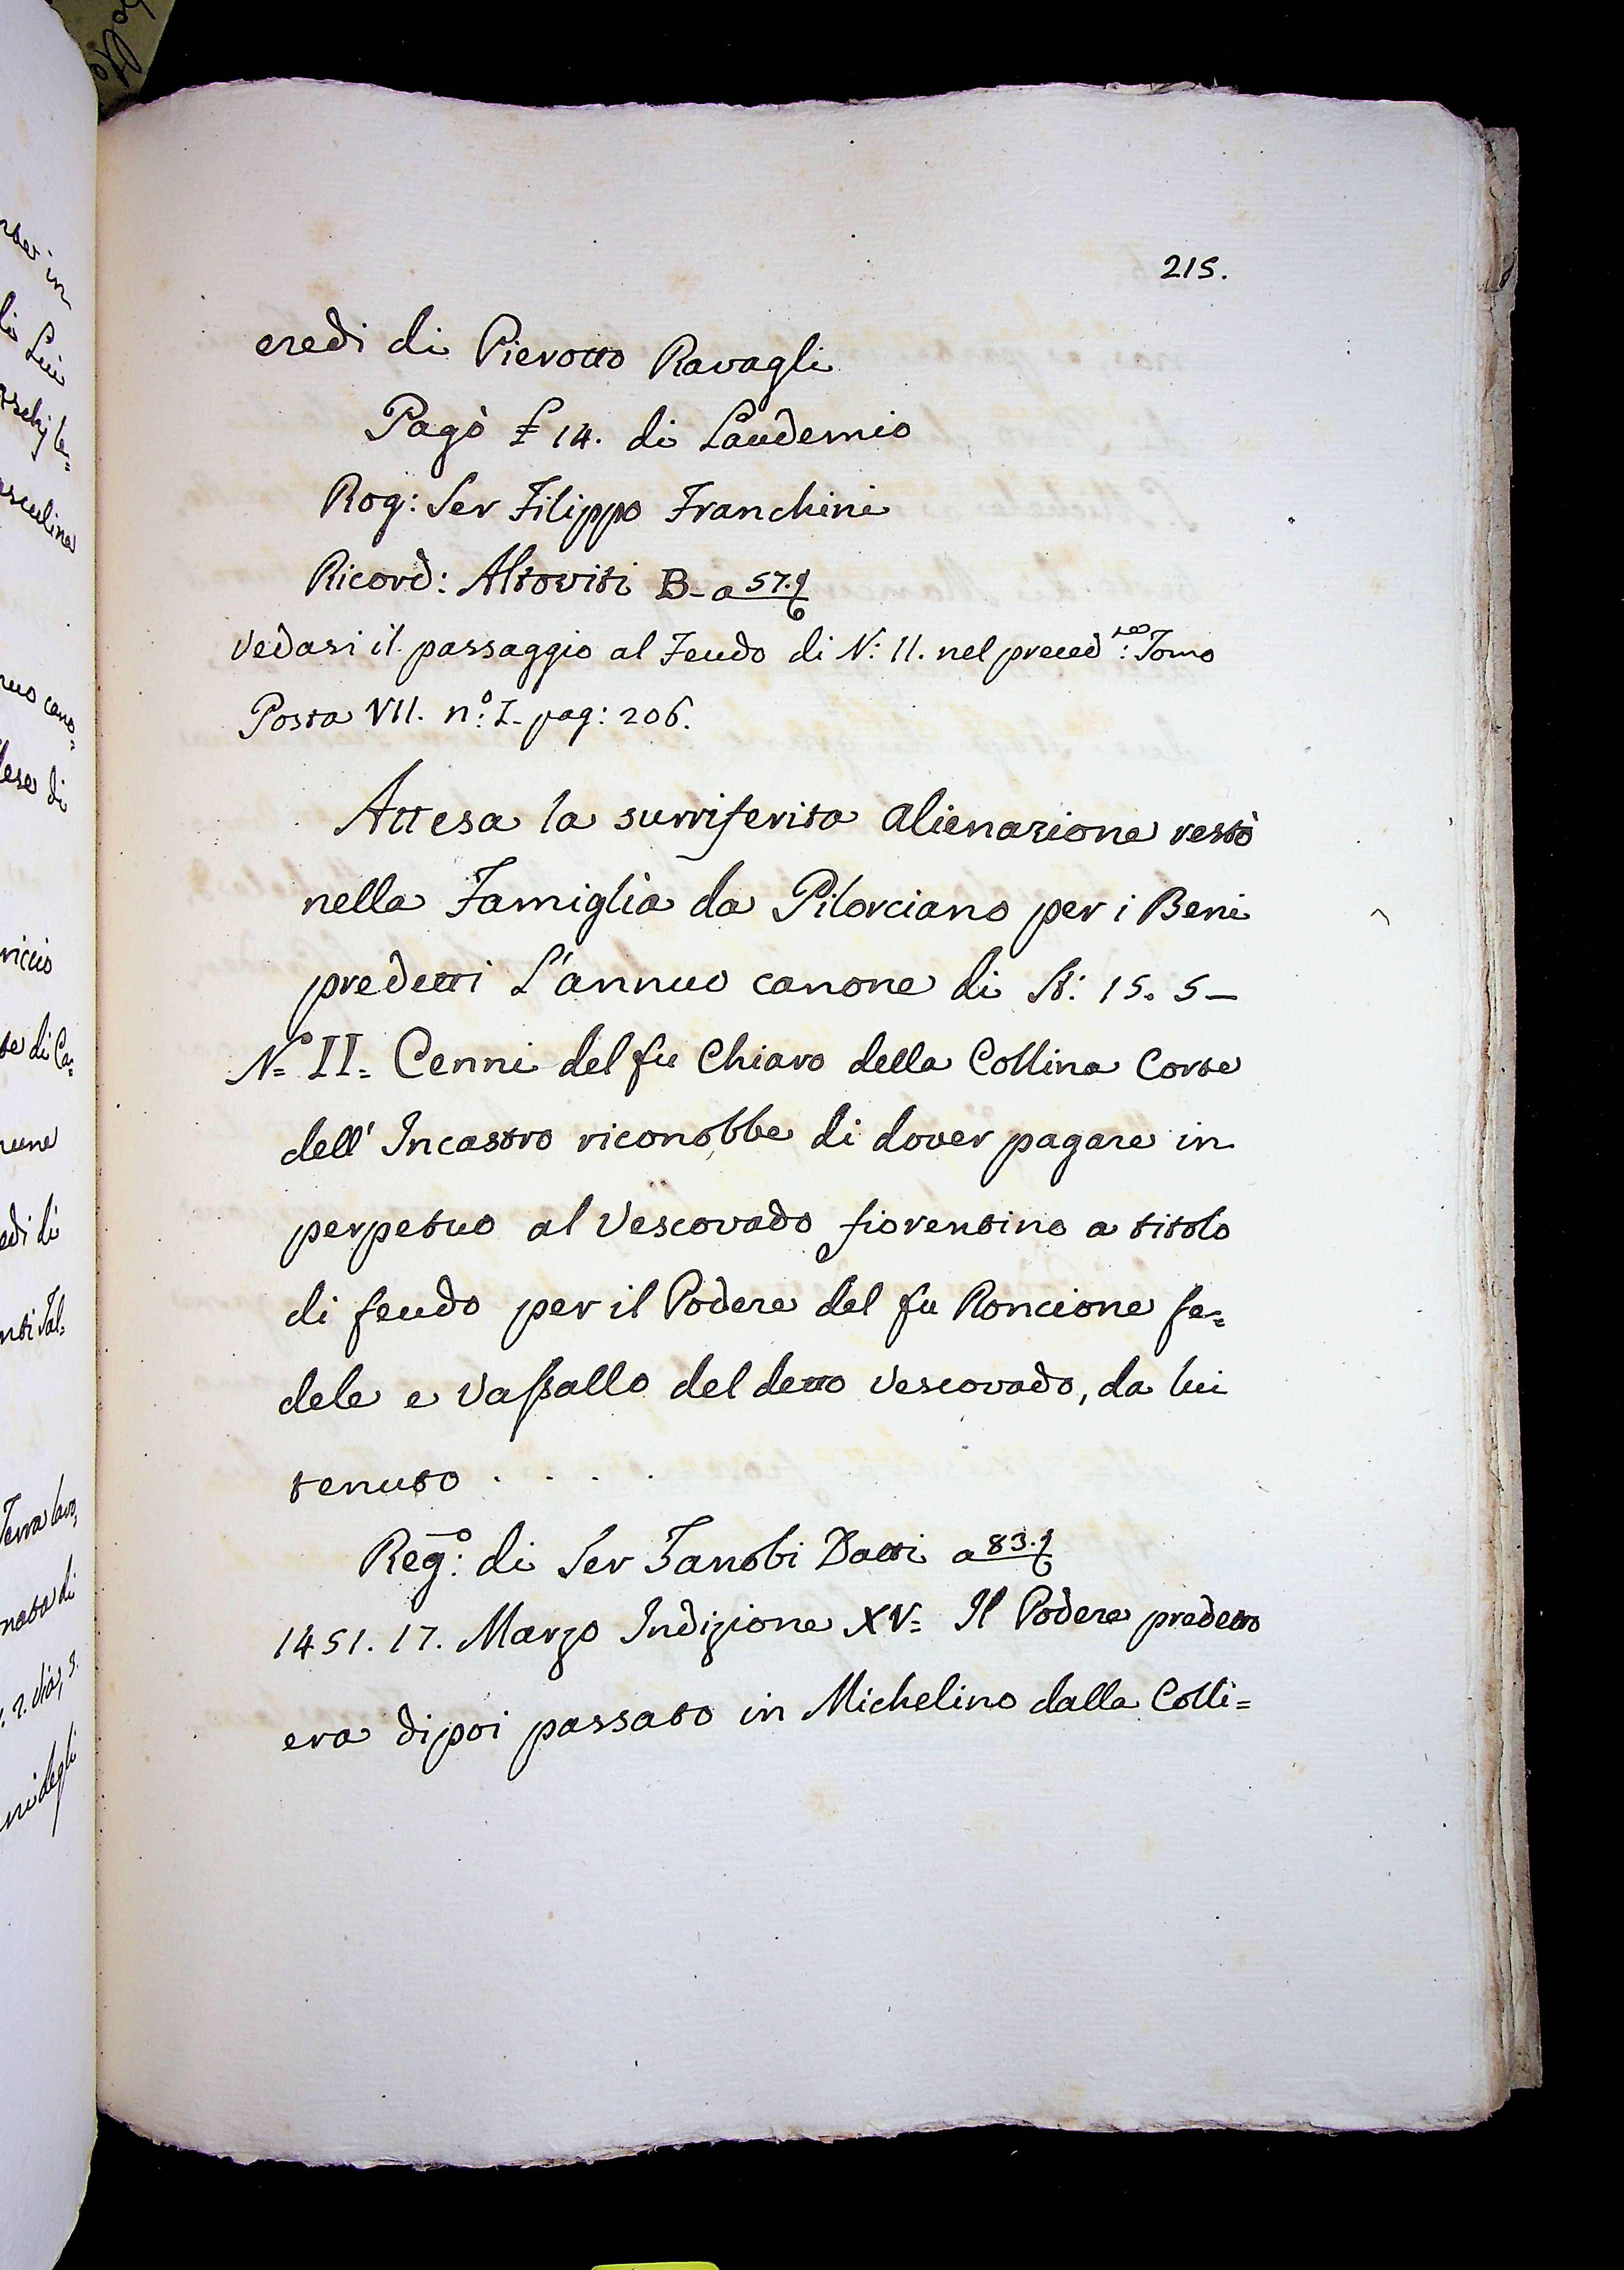 215.
eredi di Pierotto Ravagli
Pagò £ 14. di Laudemio
Rog: Ser Filippo Franchini
Ricord: Altoviti B- a 57.
Vedasi il passaggio al Feudo di N: 11. nel preced:te Tomo
Posta VII. n:o I- pag: 206.
Attesa la surriferita alienazione restò
nella Famiglia da Pilorciano per i Beni
predetti L'annuo canone di St: 15. 5-
No= II= Cenni del fu Chiaro della Collina Corte
dell' Incastro riconobbe di dover pagare in
perpetuo al Vescovado fiorentino a titolo
di feudo per il Podere del fu Roncione fe=
dele e Vassallo del detto Vescovado, da lui
tenuto . . . .
Reg:o di Ser Zanobi Datti a 83.
1451. 17. Marzo Indizione XV= Il Podere predetto
era dipoi passato in Michelino dalla Colli=